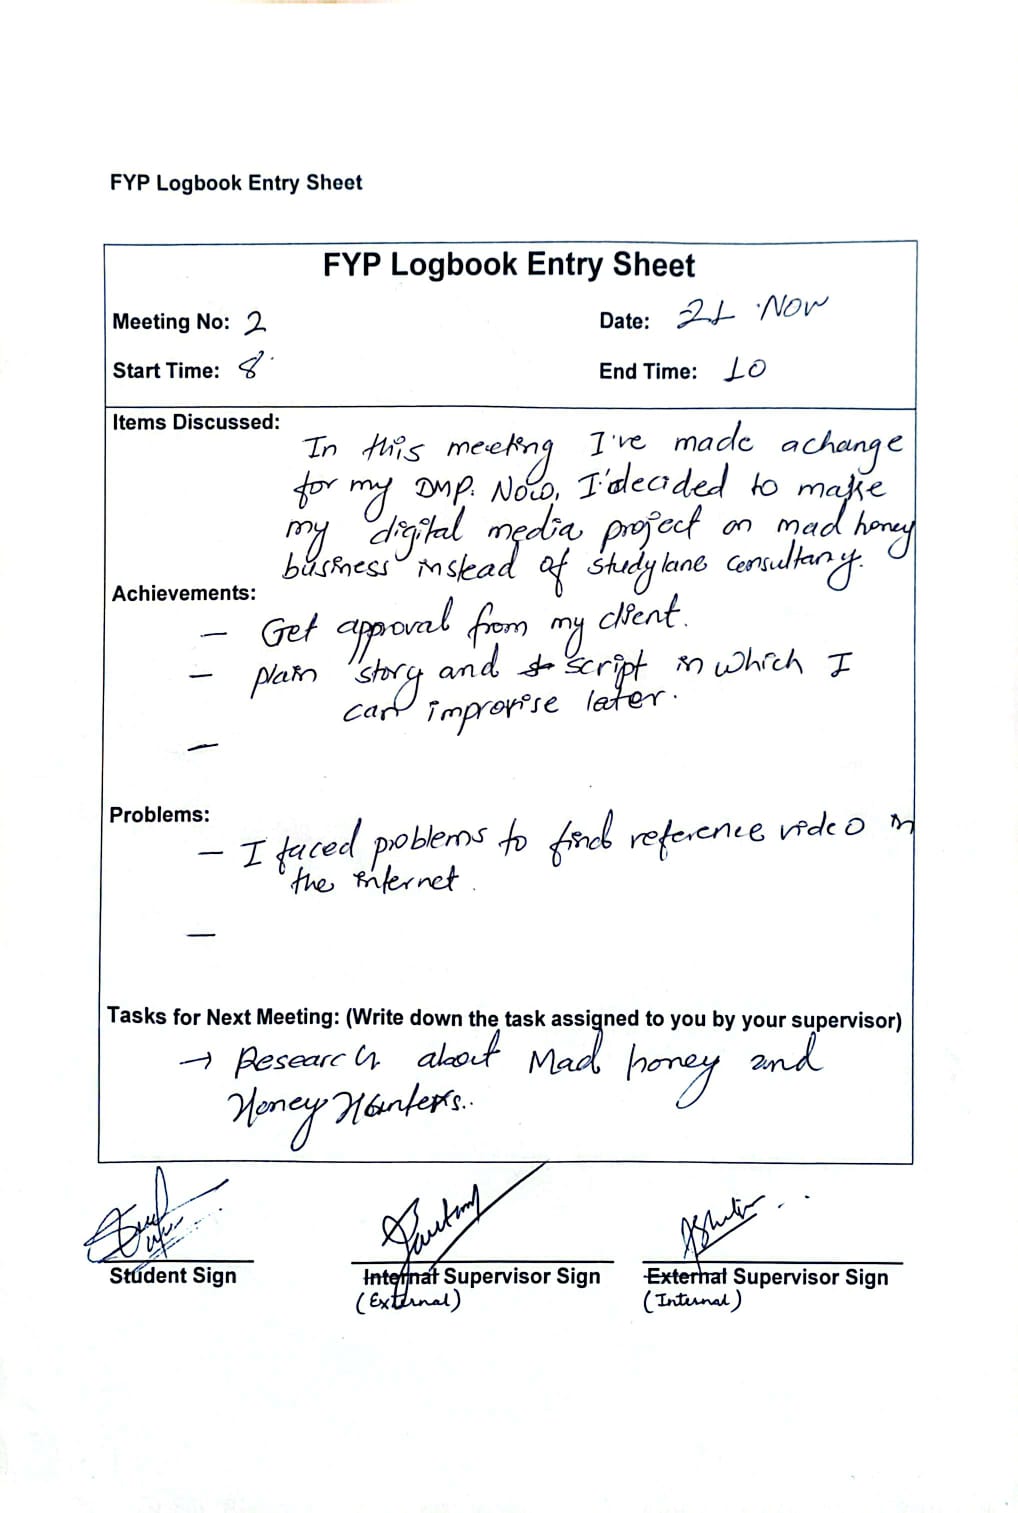 FYP Logbook Entry Sheet
FYP Logbook Entry Sheet
Meeting No: 2
Date: 21 Nov
Start Time: 8
End Time: 10
Items Discussed:
In this meeting I've made a change
for my DMP. Now, I'decided to make
my digital media project on mad honey
business instead of studylane consultany.
Achievements:
- Get approval from my client.
- plain story and script in which I
can improvise later.
-
Problems:
- I faced problems to find reference video in
the internet.
-
Tasks for Next Meeting: (Write down the task assigned to you by your supervisor)
→ Research about Mad honey and
Honey Hunters..
Student Sign
Internal Supervisor Sign
External Supervisor Sign
(External)
(Internal)